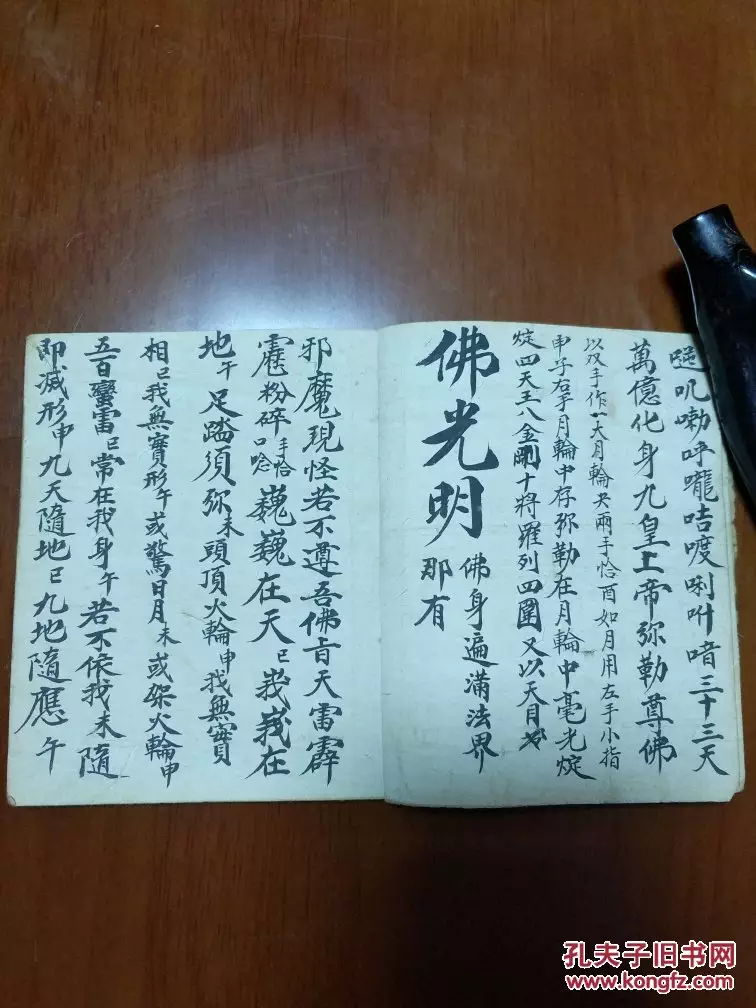 嗞叽嘞呼嚨咭喥唎吽唶三十三天
萬億化身九皇上帝弥勒尊佛
以双手作一大月輪夾兩手恰酉如月用左手小指
申子右手月輪中存弥勒在月輪中毫光熀
熀四天王八金剛十將羅列四圍又以天目
佛光明
佛身遍滿法界
那有
邪魔現怪若不遵吾佛旨天雷霹
靂粉碎手恰口唸巍巍在天巳峩峩在
地午足踏須弥未頭頂火輪申我無實
相巳我無實形午或驚日月未或架火輪申
五百蠻雷巳常在我身午若不依我未隨
即滅形申九天隨地巳九地隨應午
孔夫子旧书网
www.kongfz.com